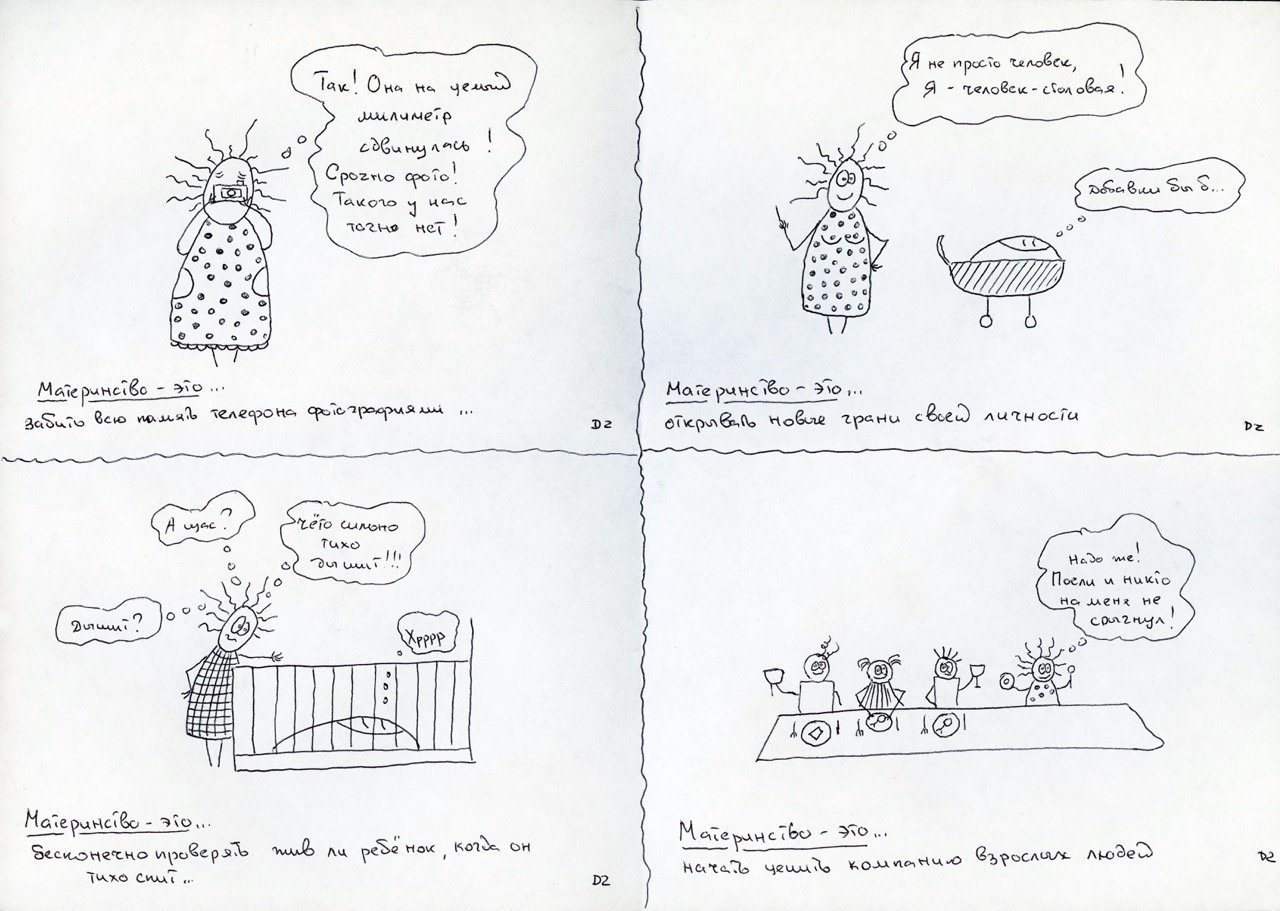 Так! Она на целый
милиметр
сдвинулась!
Срочно фото!
Такого у нас
точно нет!
Материнство - это...
забить всю память телефона фотографиями ...
DZ
Я не просто человек,
Я - человек-столовая!
Добавки бы б...
Материнство - это...
открывать новые грани своей личности
DZ
А щас?
Чёто сильно
тихо
дышит!!!
Дышит?
Хрррр
Материнство - это...
бесконечно проверять жив ли ребёнок, когда он
тихо спит...
DZ
Надо же!
Поели и никто
на меня не
срыгнул!
Материнство - это...
начать ценить компанию взрослых людей
DZ